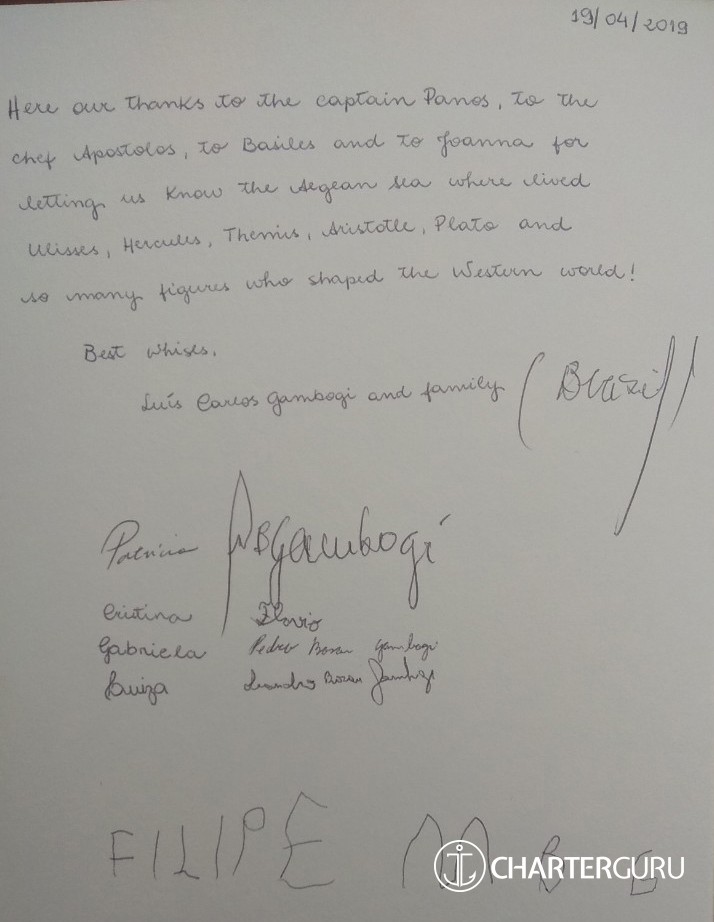 19/04/2019
Here our thanks to the captain Panos, to the
chef Apostolos, to Basiles and to Joanna for
letting us know the Aegean sea where lived
Ulisses, Hercules, Themis, Aristotle, Plato and
so many figures who shaped the Western world!
Best whises.
Luís Carlos Gambogi and family (Brazil)
Patricia Gambogi
Cristina Flavio
Gabriela Pedro Gambogi
Luiza Leandro Gambogi
FILIPE M B G
CHARTERGURU